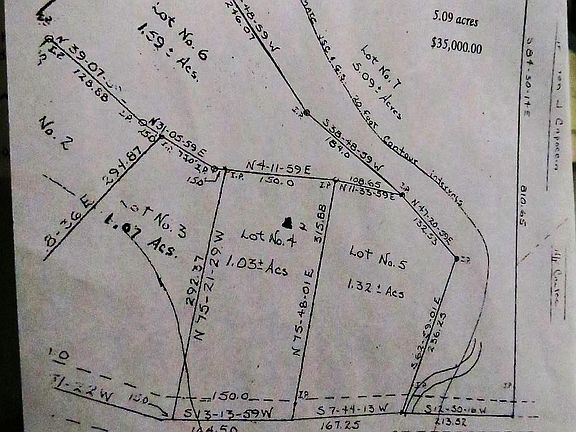 5.09 acres
$35,000.00
Lot No. 6
1.59 ± Acs.
-48-59 W
246.07
Lot No. 7
5.09 ± Acres
Contour
S 84-30-14 E
810.65
N 39-07-
128.88
I.P.
No. 2
294.87
8-36 E
N31-05-59E
I.P.
150
I.P.
S 38-48-59 W
184.0
N 4-11-59 E
150.0
I.P.
I.P.
108.65
N 11-33-59 E
I.P.
N 47-20-59E
132.53
I.P.
Lot No. 3
1.07 Acs.
292.37
N 75-21-29 W
Lot No. 4
1.03± Acs
315.88
N 75-48-01 E
Lot No. 5
1.32 ± Acs
S 62-59-01 E
256.25
I.P.
I.P.
I.P.
1-22 W
150.0
S 13-13-59W
S 7-44-13 W
167.25
S 12-30-16 W
213.52